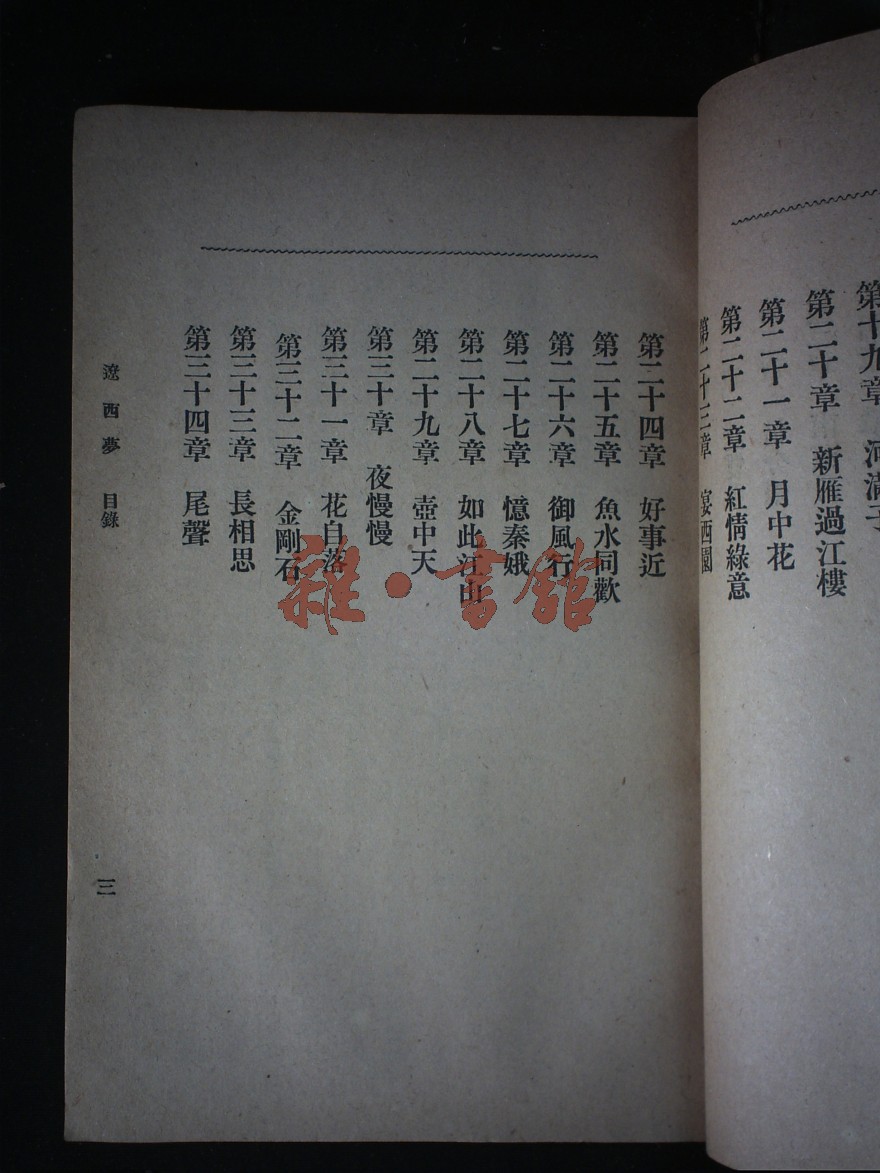 第十九章　河滿子
第二十章　新雁過江樓
第二十一章　月中花
第二十二章　紅情綠意
第二十三章　宴西園
第二十四章　好事近
第二十五章　魚水同歡
第二十六章　御風行
第二十七章　憶秦娥
第二十八章　如此江山
第二十九章　壺中天
第三十章　夜慢慢
第三十一章　花自落
第三十二章　金剛石
第三十三章　長相思
第三十四章　尾聲
遼西夢　目錄
三
雜·書館